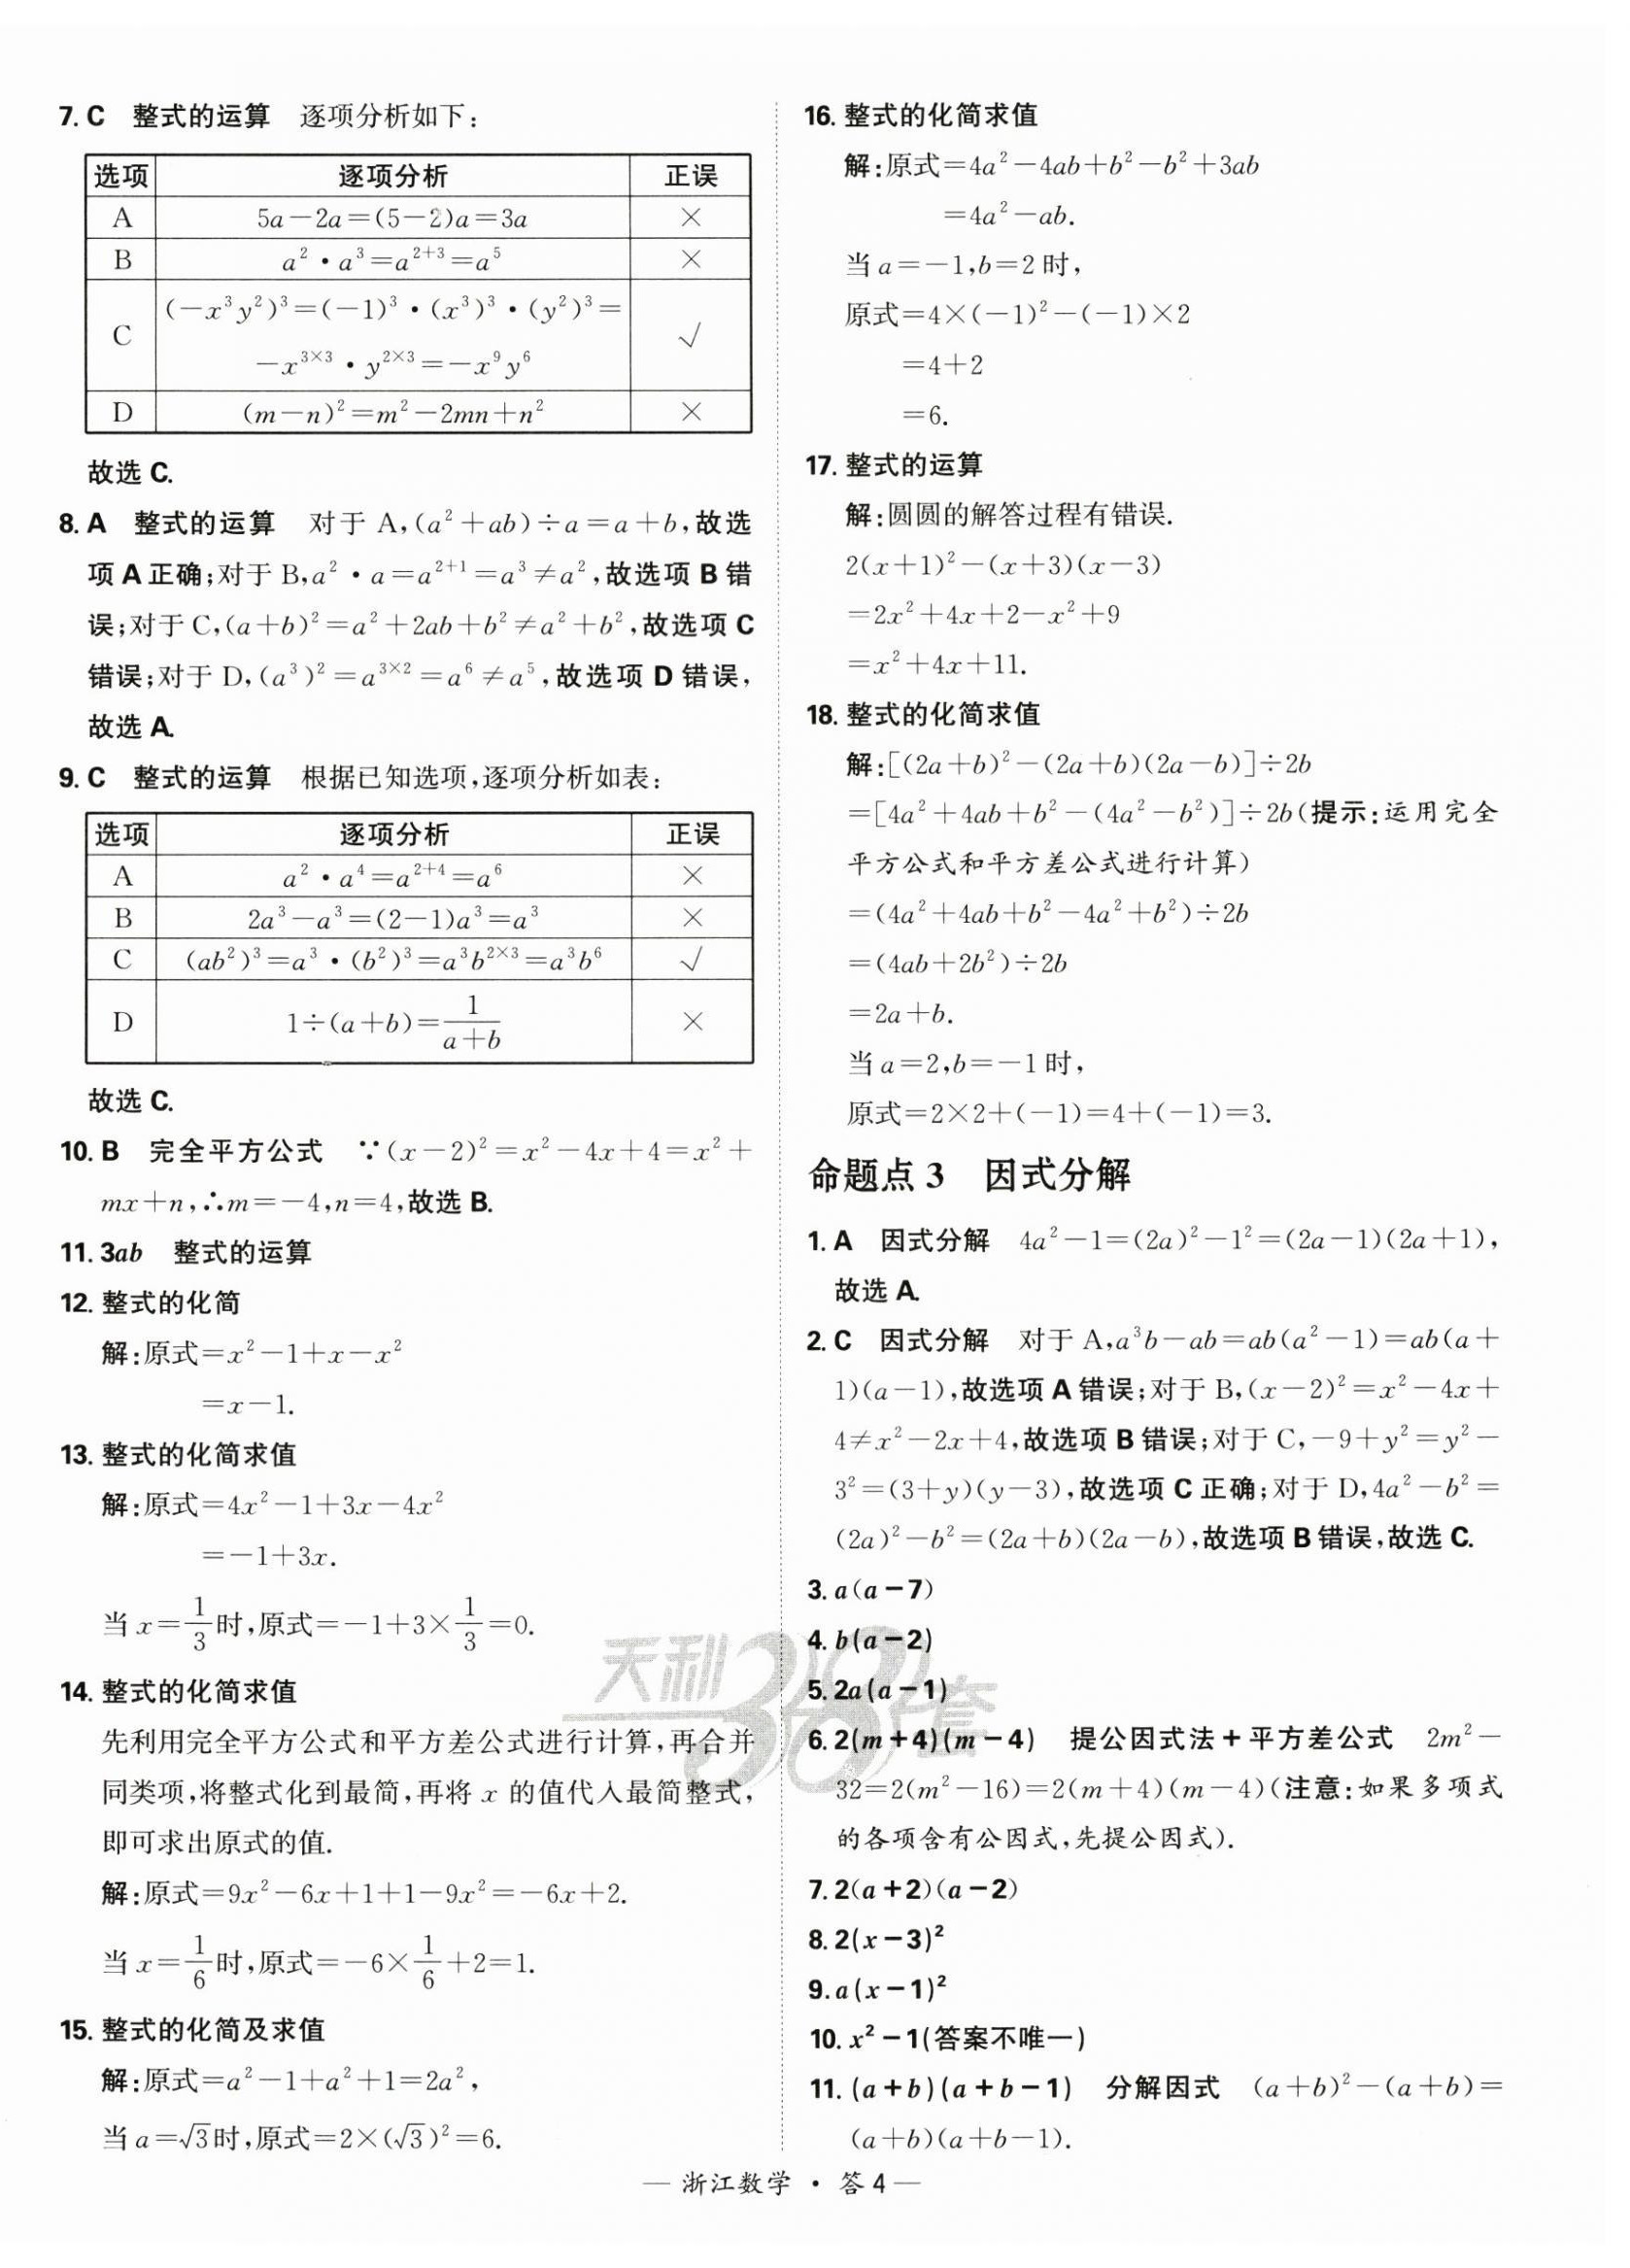 7. C 整式的运算 逐项分析如下:
选项 逐项分析 正误
A 5a-2a=(5-2)a=3a ×
B a²·a³=a²⁺³=a⁵ ×
C (-x³y²)³=(-1)³·(x³)³·(y²)³=
-x³ˣ³·y²ˣ³=-x⁹y⁶ √
D (m-n)²=m²-2mn+n² ×
故选 C.
8. A 整式的运算 对于 A,(a²+ab)÷a=a+b,故选
项 A 正确;对于 B,a²·a=a²⁺¹=a³≠a²,故选项 B 错
误;对于 C,(a+b)²=a²+2ab+b²≠a²+b²,故选项 C
错误;对于 D,(a³)²=a³ˣ²=a⁶≠a⁵,故选项 D 错误,
故选 A.
9. C 整式的运算 根据已知选项,逐项分析如表:
选项 逐项分析 正误
A a²·a⁴=a²⁺⁴=a⁶ ×
B 2a³-a³=(2-1)a³=a³ ×
C (ab²)³=a³·(b²)³=a³b²ˣ³=a³b⁶ √
D 1÷(a+b)=1/(a+b) ×
故选 C.
10. B 完全平方公式 ∵(x-2)²=x²-4x+4=x²+
mx+n,∴m=-4,n=4,故选 B.
11. 3ab 整式的运算
12. 整式的化简
解:原式=x²-1+x-x²
=x-1.
13. 整式的化简求值
解:原式=4x²-1+3x-4x²
=-1+3x.
当 x=1/3时,原式=-1+3×1/3=0.
14. 整式的化简求值
先利用完全平方公式和平方差公式进行计算,再合并
同类项,将整式化到最简,再将 x 的值代入最简整式,
即可求出原式的值.
解:原式=9x²-6x+1+1-9x²=-6x+2.
当 x=1/6时,原式=-6×1/6+2=1.
15. 整式的化简及求值
解:原式=a²-1+a²+1=2a²,
当 a=√3时,原式=2×(√3)²=6.
16. 整式的化简求值
解:原式=4a²-4ab+b²-b²+3ab
=4a²-ab.
当 a=-1,b=2 时,
原式=4×(-1)²-(-1)×2
=4+2
=6.
17. 整式的运算
解:圆圆的解答过程有错误.
2(x+1)²-(x+3)(x-3)
=2x²+4x+2-x²+9
=x²+4x+11.
18. 整式的化简求值
解:[(2a+b)²-(2a+b)(2a-b)]÷2b
=[4a²+4ab+b²-(4a²-b²)]÷2b(提示:运用完全
平方公式和平方差公式进行计算)
=(4a²+4ab+b²-4a²+b²)÷2b
=(4ab+2b²)÷2b
=2a+b.
当 a=2,b=-1 时,
原式=2×2+(-1)=4+(-1)=3.
命题点 3 因式分解
1. A 因式分解 4a²-1=(2a)²-1²=(2a-1)(2a+1),
故选 A.
2. C 因式分解 对于 A,a³b-ab=ab(a²-1)=ab(a+
1)(a-1),故选项 A 错误;对于 B,(x-2)²=x²-4x+
4≠x²-2x+4,故选项 B 错误;对于 C,-9+y²=y²-
3²=(3+y)(y-3),故选项 C 正确;对于 D,4a²-b²=
(2a)²-b²=(2a+b)(2a-b),故选项 B 错误,故选 C.
3. a(a-7)
4. b(a-2)
5. 2a(a-1)
6. 2(m+4)(m-4) 提公因式法+平方差公式 2m²-
32=2(m²-16)=2(m+4)(m-4)(注意:如果多项式
的各项含有公因式,先提公因式).
7. 2(a+2)(a-2)
8. 2(x-3)²
9. a(x-1)²
10. x²-1(答案不唯一)
11. (a+b)(a+b-1) 分解因式 (a+b)²-(a+b)=
(a+b)(a+b-1).
天利38套
— 浙江数学·答 4 —